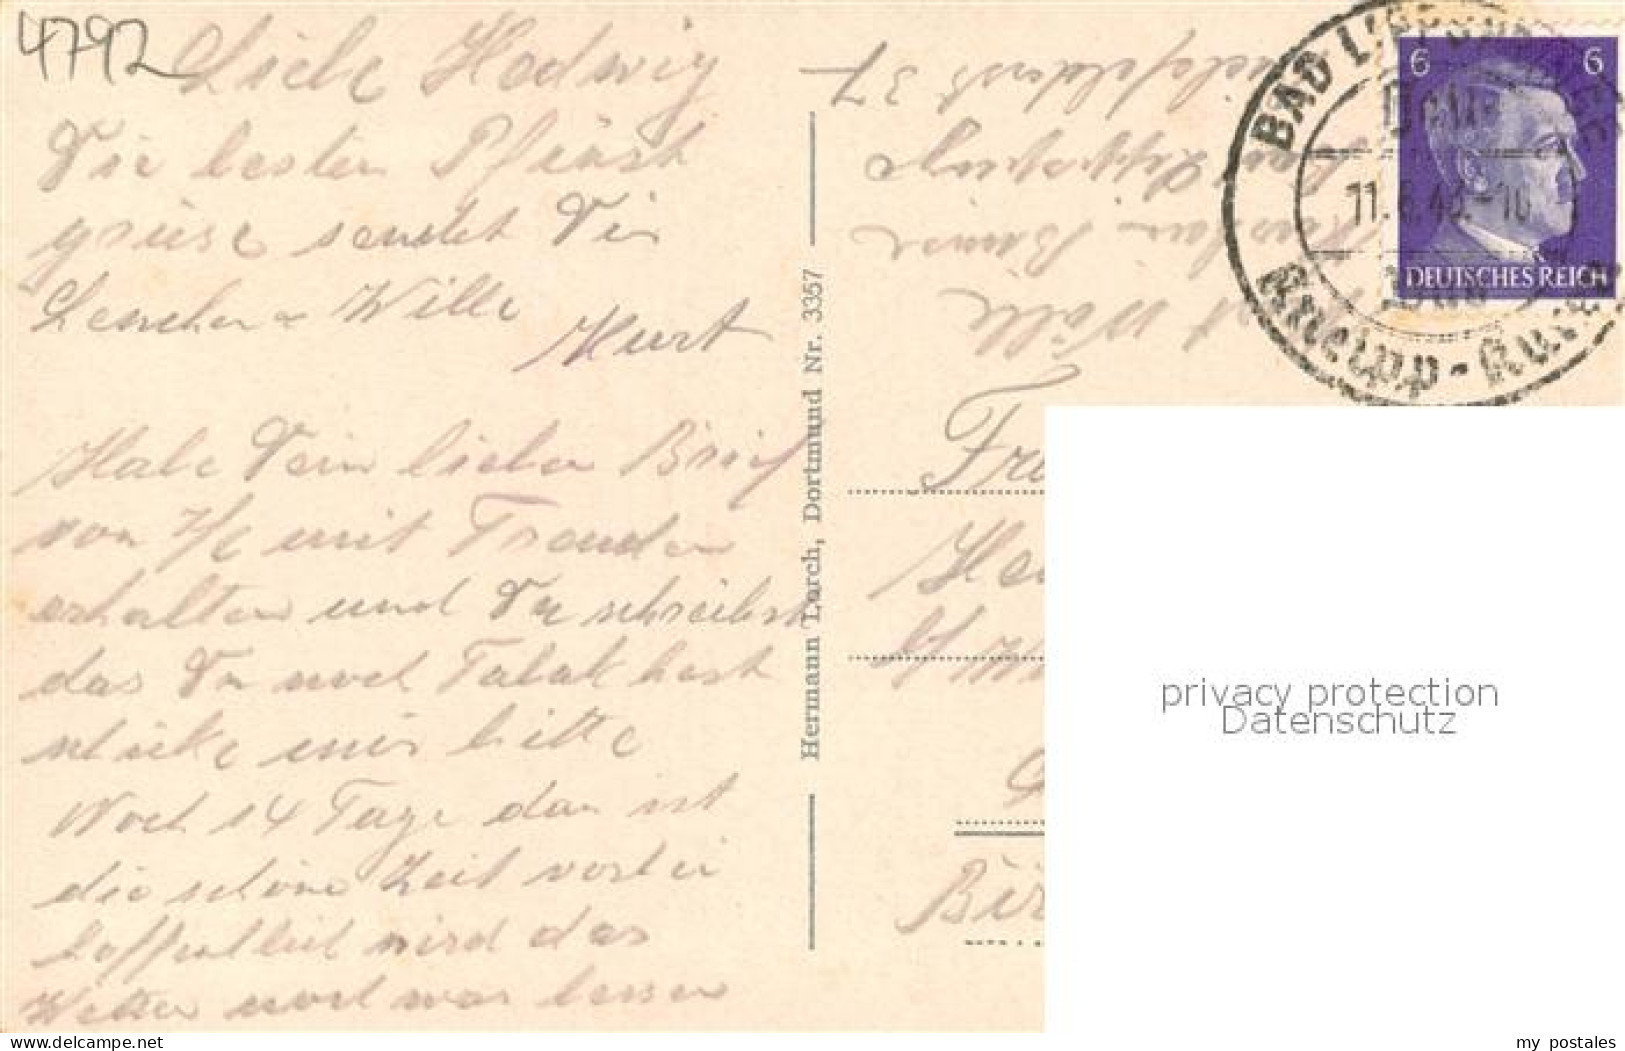 4792
Liebe Hedwig
Die besten Pfingst
grüsse sendet Dir
Lenchen u Wille
Kurt
Habe Dein lieben Brief
von mit Freuden
erhalten und Du schreibst
das Du noch Tabak hast
schicke mir bitte
Noch 14 Tage dan ist
die schöne Zeit vorbei
hoffentlich wird das
Wetter noch was besser
Hermann Lorch, Dortmund Nr. 3357
37
Wille
BAD
11.
Kneipp-Kur
6 6
DEUTSCHES REICH
privacy protection
Datenschutz
www.delcampe.net
my_postales